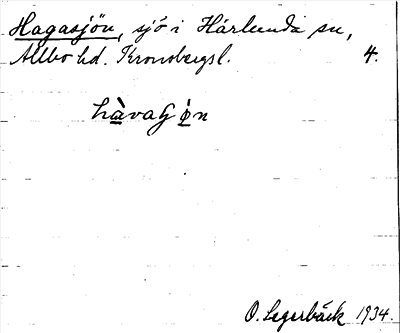 Hagasjön, sjö i Härlunda sn,
Allbo hd. Kronobergsl. 4.
hàvaɧ ø̀n
O. Legerbäck 1934.